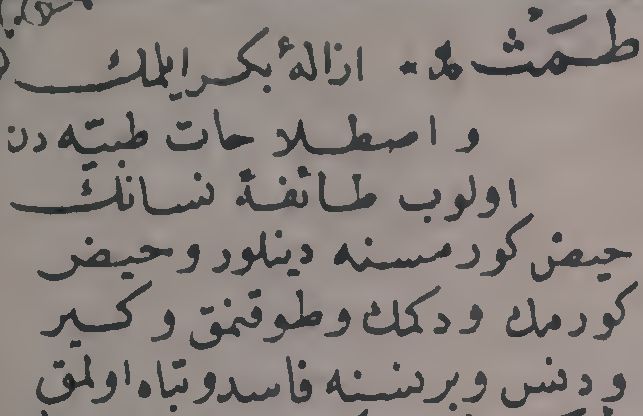 طَمَثْ مد * ازالهٔ بكر ايلمك
و اصطلاحات طبيّه دن
اولوب طائفهٔ نسانك
حيض كورمسنه دينلور و حيض
كورمك و دكمك و طوقنمق و كير
و دنس و برنسنه فاسد و تباه اولمق